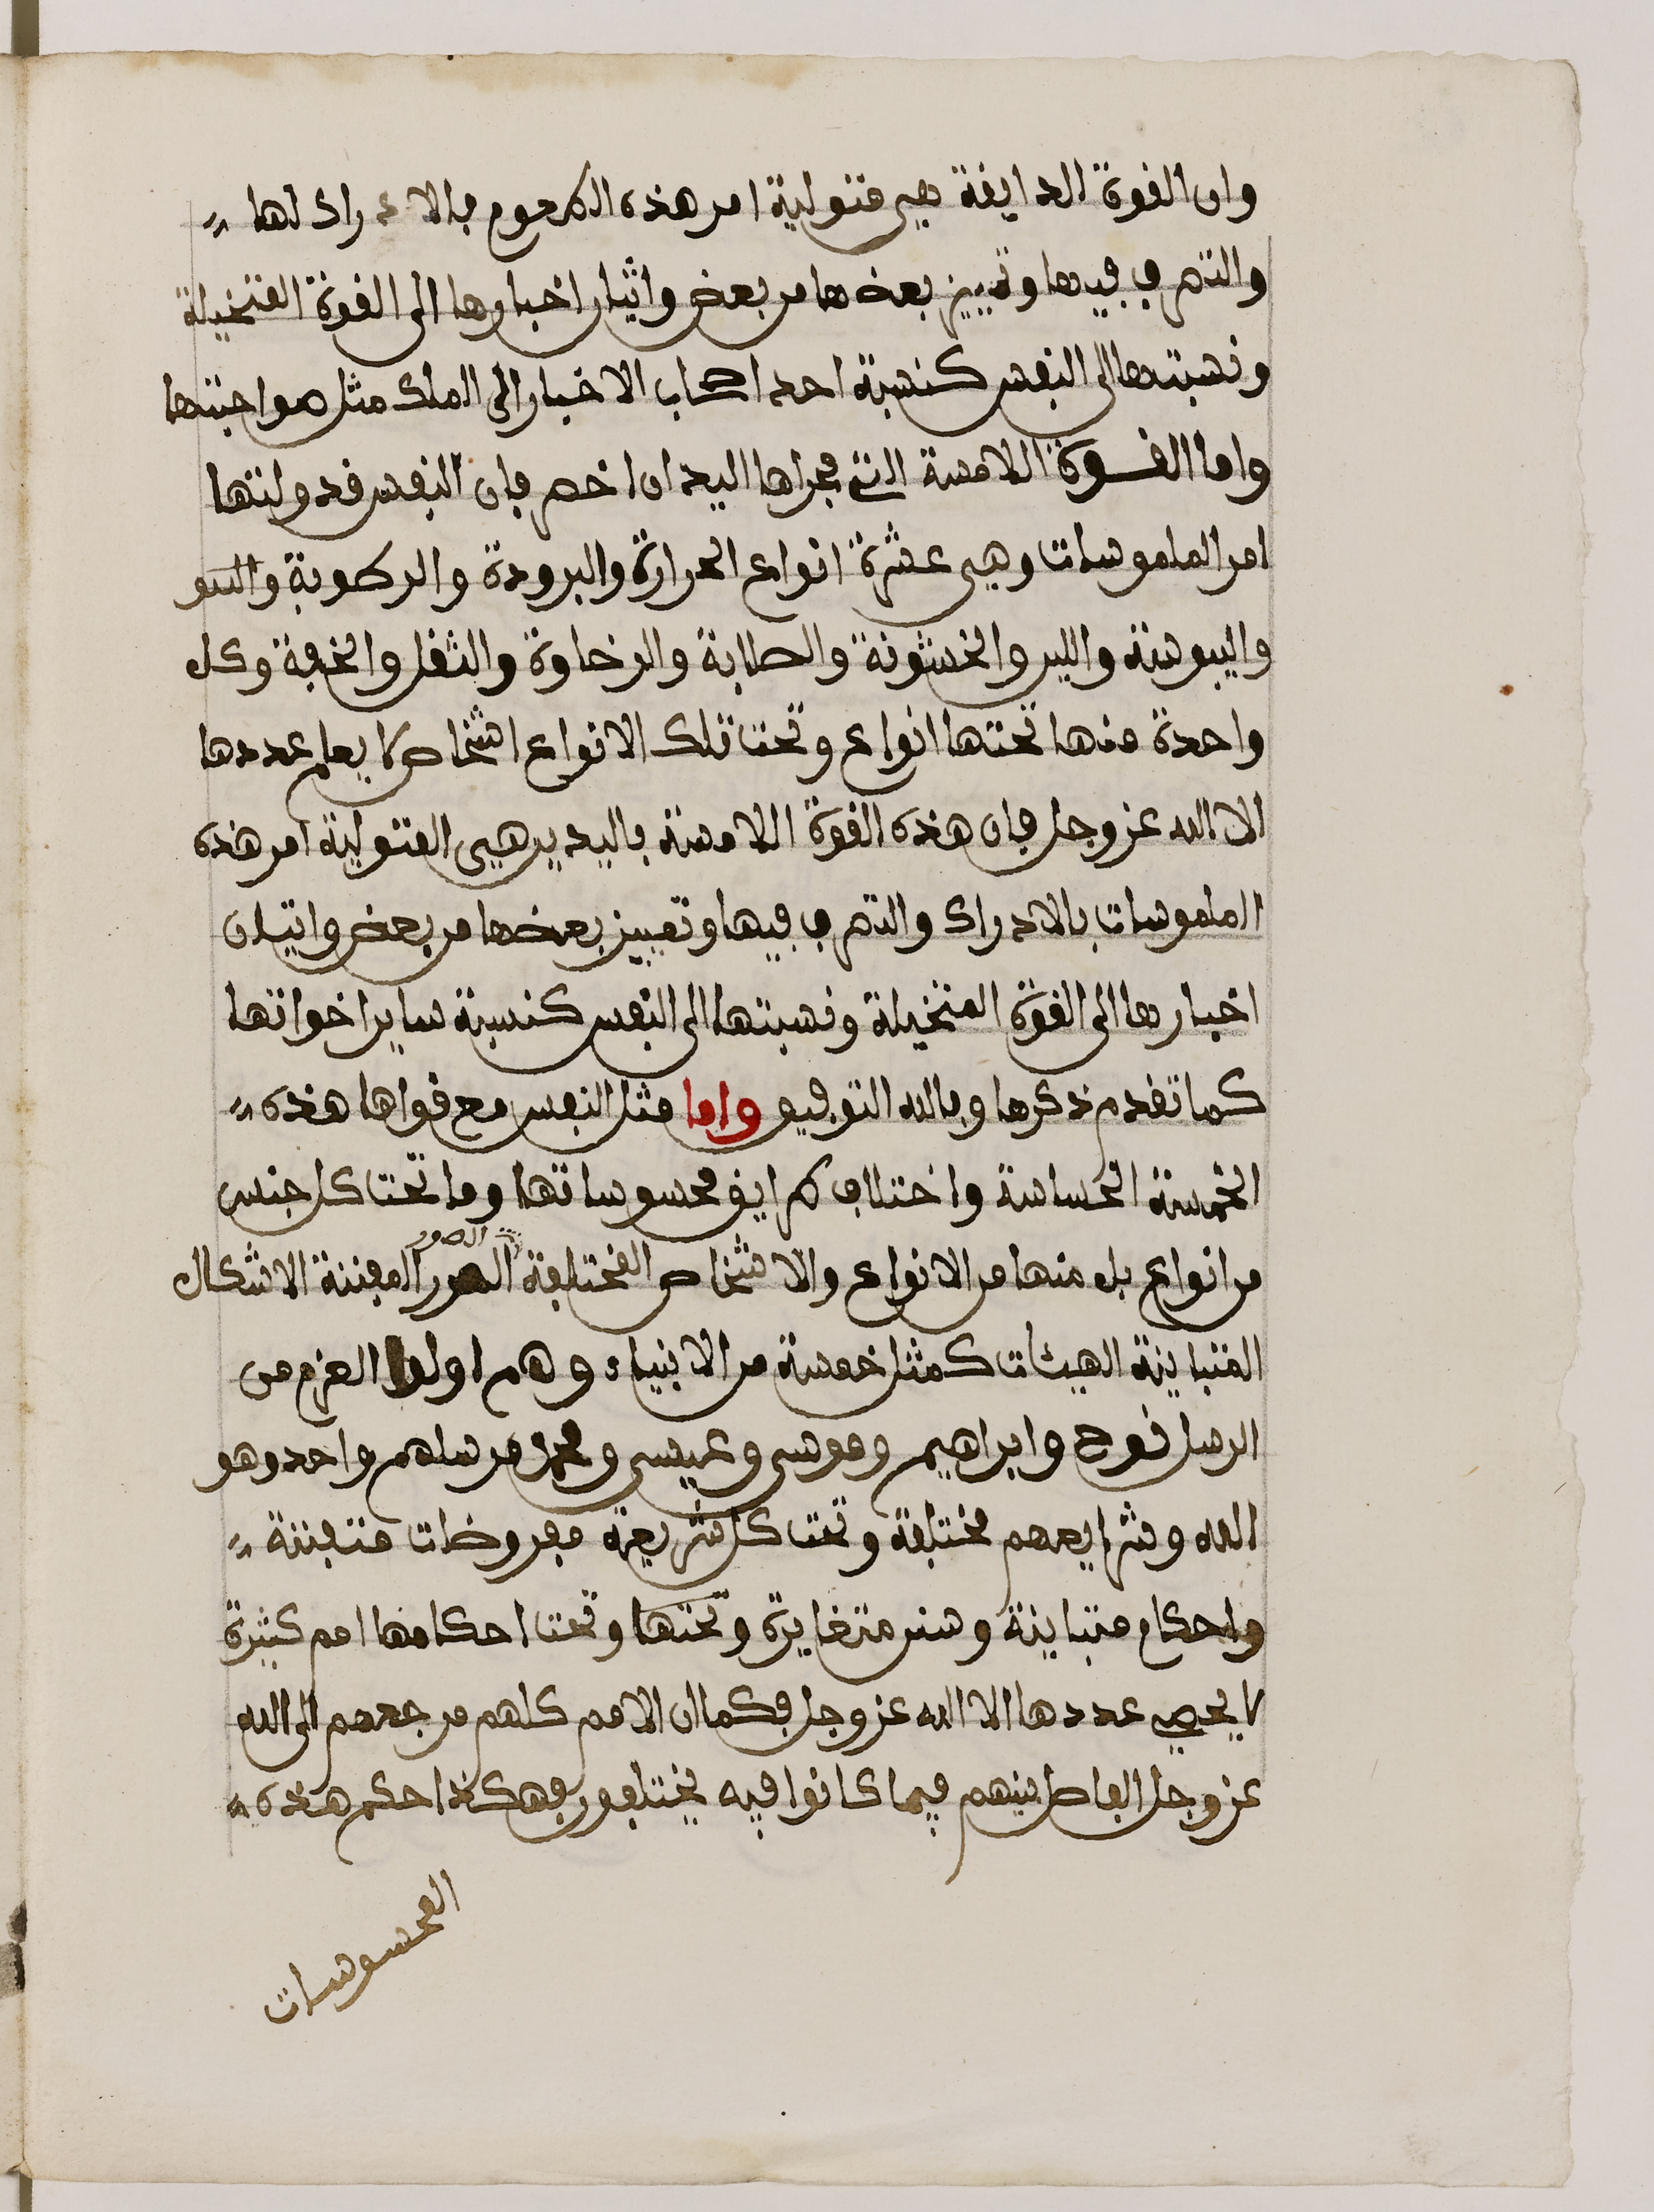 وان القوة الذايقة هي متولية امر هذه الطعوم بالادراك لها
والتصرف فيها وتمييز بعضها من بعض واتيان اخبارها الى القوة المتخيلة
ونسبتها الى النفس كنسبة احد اصحاب الاخبار الى الملك مثل صواحبتها
واما القوة اللامسة التي مجراها اليدان اخص فان النفس قد ولتها
امر الملموسات وهي عشرة انواع الحرارة والبرودة والرطوبة
واليبوسة واللين والخشونة والصلابة والرخاوة والثقل والخفة وكل
واحدة منها تحتها انواع وتحت تلك الانواع اشخاص لا يعلم عددها
الا الله عز وجل فان هذه القوة اللامسة باليدين هي المتولية امر هذه
الملموسات بالادراك والتصرف فيها وتمييز بعضها من بعض واتيان
اخبارها الى القوة المتخيلة ونسبتها الى النفس كنسبة ساير اخواتها
كما تقدم ذكرها وبالله التوفيق واما مثل النفس مع قواها هذه
الخمسة الحساسة واختلاف طرايق محسوساتها وما تحت كل جنس
من انواع بل منها من الانواع والاشخاص المختلفة الصور المفننة الاشكال
الصور
المتباينة الهيئات كمثل خمسة من الانبياء وهم اولوا العزم من
الرسل نوح وابراهيم وموسى وعيسى ومحمد مرسلهم واحد وهو
الله وشرايعهم مختلفة وتحت كل شريعة مفروضات متفننة
واحكام متباينة وسنن متغايرة وتحتها وتحت احكامها امم كثيرة
لا يحصي عددها الا الله عز وجل فكما ان الامم كلهم مرجعهم الى الله
عز وجل الفاصل بينهم فيما كانوا فيه يختلفون فهكذا حكم هذه
المحسوسات